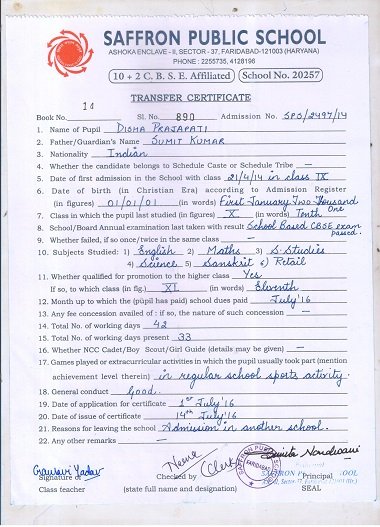 SAFFRON PUBLIC SCHOOL
ASHOKA ENCLAVE - II, SECTOR - 37, FARIDABAD-121003 (HARYANA)
PHONE : 2255735, 4128196
10 + 2 C. B. S. E. Affiliated School No. 20257
TRANSFER CERTIFICATE
Book No. 18 Sl. No. 890 Admission No. SPS/2497/14
1. Name of Pupil DISHA PRAJAPATI
2. Father/Guardian's Name SUMIT KUMAR
3. Nationality Indian
4. Whether the candidate belongs to Schedule Caste or Schedule Tribe —
5. Date of first admission in the School with class 21/4/14 in class IX
6. Date of birth (in Christian Era) according to Admission Register
(in figures) 01/01/01 (in words) First January Two Thousand One
7. Class in which the pupil last studied (in figures) X (in words) Tenth
8. School/Board Annual examination last taken with result School Based CBSE exam passed.
9. Whether failed, if so once/twice in the same class —
10. Subjects Studied: 1) English 2) Maths 3) S. Studies
4) Science 5) Sanskrit 6) Retail
11. Whether qualified for promotion to the higher class Yes
If so, to which class (in fig.) XI (in words) Eleventh
12. Month up to which the (pupil has paid) school dues paid July'16
13. Any fee concession availed of : if so, the nature of such concession —
14. Total No. of working days 42
15. Total No. of working days present 33
16. Whether NCC Cadet/Boy Scout/Girl Guide (details may be given) —
17. Games played or extracurricular activities in which the pupil usually took part (mention
achievement level therein) in regular school sports activity.
18. General conduct Good.
19. Date of application for certificate 1st July'16
20. Date of issue of certificate 14th July'16
21. Reasons for leaving the school Admission in another school.
22. Any other remarks —
Gauravi Yadav
Signature of
Class teacher
Checked by
(state full name and designation)
(Clerk)
FARIDABAD
Principal
SEAL